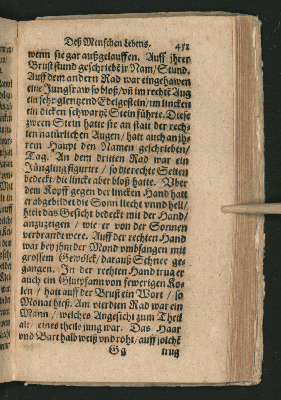 Deß Menschen Lebens. 451
wenn sie gar außgelauffen. Auff ihrer
Brust stund geschriebē jr Nam / Stund.
Auff dem andern Rad war eingehawen
eine Jungfraw so bloß / vn̄ im rechtē Aug
ein sehr glentzend Edelgestein / im lincken
ein dicken schwartzē Stein führte. Diese
zween Stein hatte sie an statt der rech-
ten natürlichen Augen / hatt auch an jh-
rem Haupt den Namen geschrieben /
Tag. An dem dritten Rad war ein
Jüngling figurirt / so die rechte Seiten
bedeckt / die lincke aber bloß hatte. Vber
dem Kopff gegen der lincken Hand hatt
er abgebildet die Sonn liecht vnnd hell /
hielt das Gesicht bedeckt mit der Hand /
anzuzeigen / wie er von der Sonnen
verbrandt were. Auff der rechten Hand
war bey jhm der Mond vmbfangen mit
grossem Gewölck / darauß Schnee ge-
gangen. In der rechten Hand trug er
auch ein Glutpfann von fewerigen Ko-
len / hatt auff der Brust ein Wort / so
Monat hieß. Am vierdten Rad war ein
Mann / welches Angesicht zum Theil
alt / eines theils jung war. Das Haar
vnd Bart halb weiß vnd roht / auff solchē
Gg trug